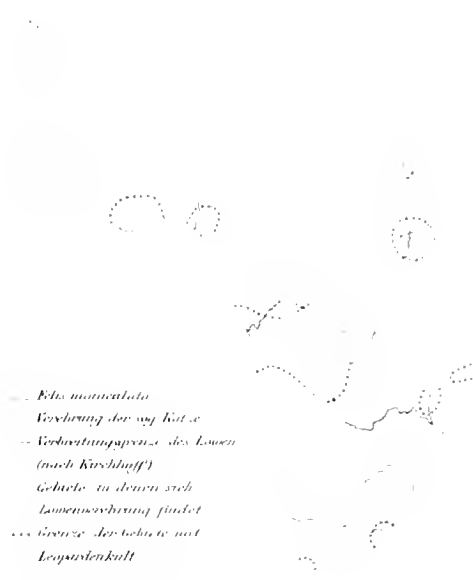 Felis maniculata
Verehrung der äg. Katze
Verbreitungsgrenze des Löwen
(nach Kirchhoff)
Gebiete in denen sich
Löwenverehrung findet
Grenze der Gebiete mit
Leopardenkult